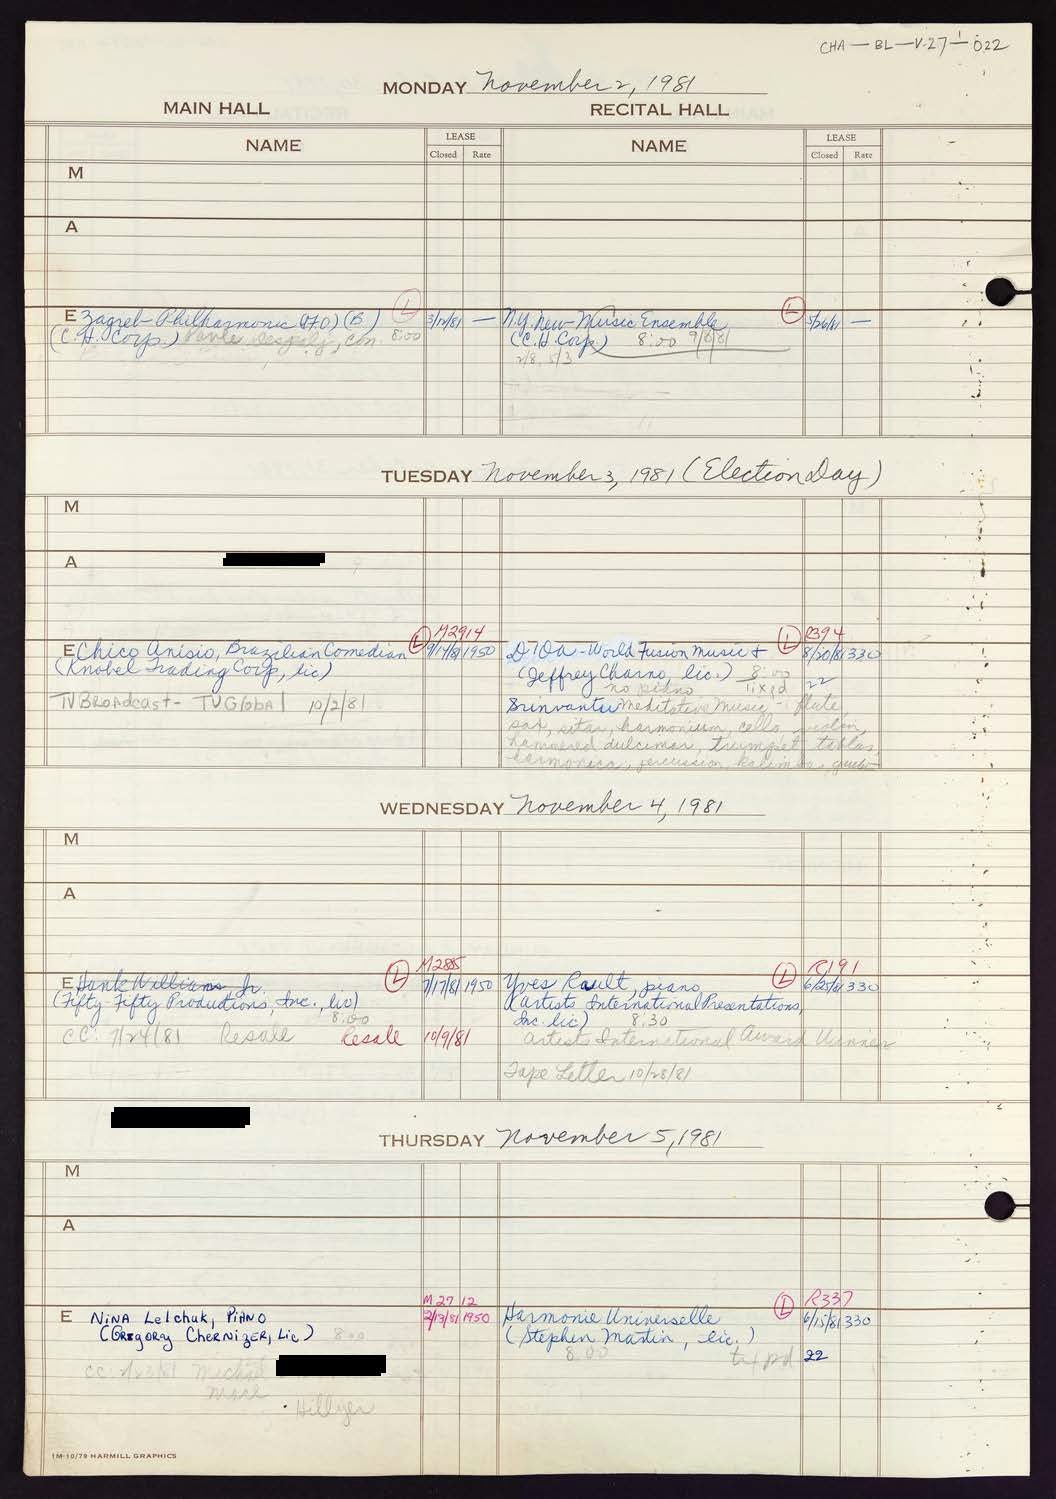 CHA — BL — V-27 — 022
MONDAY November 2, 1981
MAIN HALL
RECITAL HALL
NAME
LEASE
Closed
Rate
NAME
LEASE
Closed
Rate
M
A
E Zagreb Philharmonic (B)
(C.H. Corp.) con. 8:00
L
3/11/81 —
N.Y. New Music Ensemble
(C.H. Corp) 8:00 9/8/81
2/8, 5/3
L
5/26/81 —
TUESDAY November 3, 1981 (Election Day)
M
A
E Chico Anisio, Brazilian Comedian
(Knobel Trading Corp, lic)
TV Broadcast - TV Global 10/2/81
L
M2914
9/14/81 1950
D'Oa - World Fusion Music +
(Jeffrey Charno, lic.) 8:00
no piano tix pd
Srinvantu Meditative Music - flute,
sax, sitar, harmonium, cello, violin,
hammered dulcimer, trumpet tablas,
harmonica, percussion, kalimba,
L
R394
8/20/81 330
22
WEDNESDAY November 4, 1981
M
A
E Hank Williams Jr.
(Fifty Fifty Productions, Inc., lic)
8:00
CC: 7/24/81 Resale Resale 10/9/81
L
M2885
7/17/81 1950
Yves Rault, piano
(Artists International Presentations,
Inc. lic) 8:30
Artists International Award Winner
Tape Letter 10/28/81
L
R191
6/25/81 330
THURSDAY November 5, 1981
M
A
E NiNA Lelchuk, PiANO
(GREGORY CHERNiZER, Lic) 8:00
CC: 2/23/81 Michael
Mace
Hillyer
M2712
2/13/81 1950
Harmonie Universelle
(Stephen Martin, lic.)
8:00 tix pd 22
L
R337
6/15/81 330
1M-10/79 HARMILL GRAPHICS